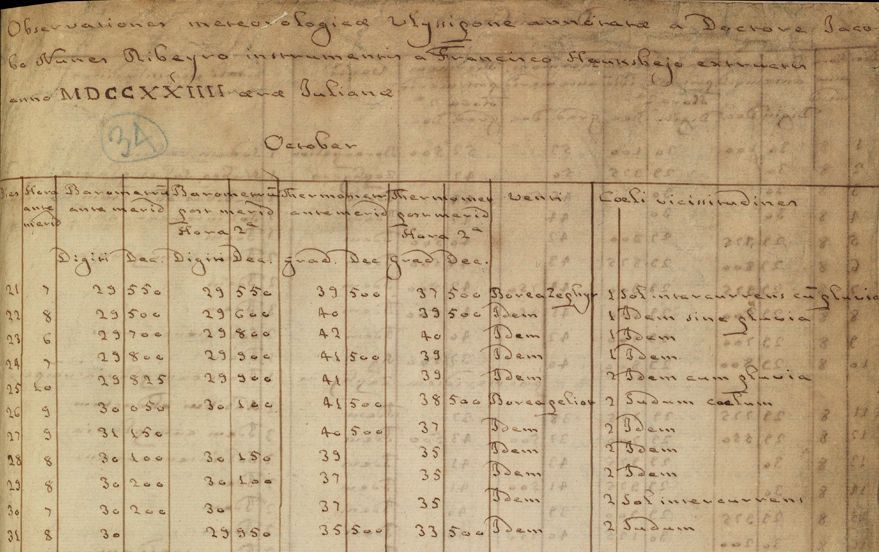 Observationes meteorologicæ Ulyssipone annotatæ a Doctore Jaco-
bo Nunes Ribeyro instrumentis a Francisco Hauksbejo extructis
anno MDCCXXIIII æræ Julianæ
34
October
Dies Hora ante merid Barometrũ ante merid Barometrũ post merid Hora 2ª Thermometr ante merid Thermomet post merid Hora 2ª venti Coeli vicissitudines
Digiti Dec. Digiti Dec. grad. Dec grad Dec.
21 7 29 550 29 550 39 500 37 500 Borea Zephyr 1 Sol intercurrens cũ pluvia
22 8 29 500 29 600 40 39 500 Idem 1 Idem sine pluvia
23 6 29 700 29 800 42 40 Idem 1 Idem
24 7 29 800 29 900 41 500 39 Idem 1 Idem
25 10 29 825 29 900 41 39 Idem 2 Idem cum pluvia
26 9 30 050 30 100 41 500 38 500 Boreapeliot 2 Sudum coelum
27 9 31 150 40 500 37 Idem 2 Idem
28 8 30 100 30 150 39 35 Idem 2 Idem
29 8 30 200 30 100 37 35 Idem 2 Idem
30 7 30 200 30 37 35 Idem 2 Sol intercurrens
31 8 30 29 950 35 500 33 500 Idem 2 Sudum